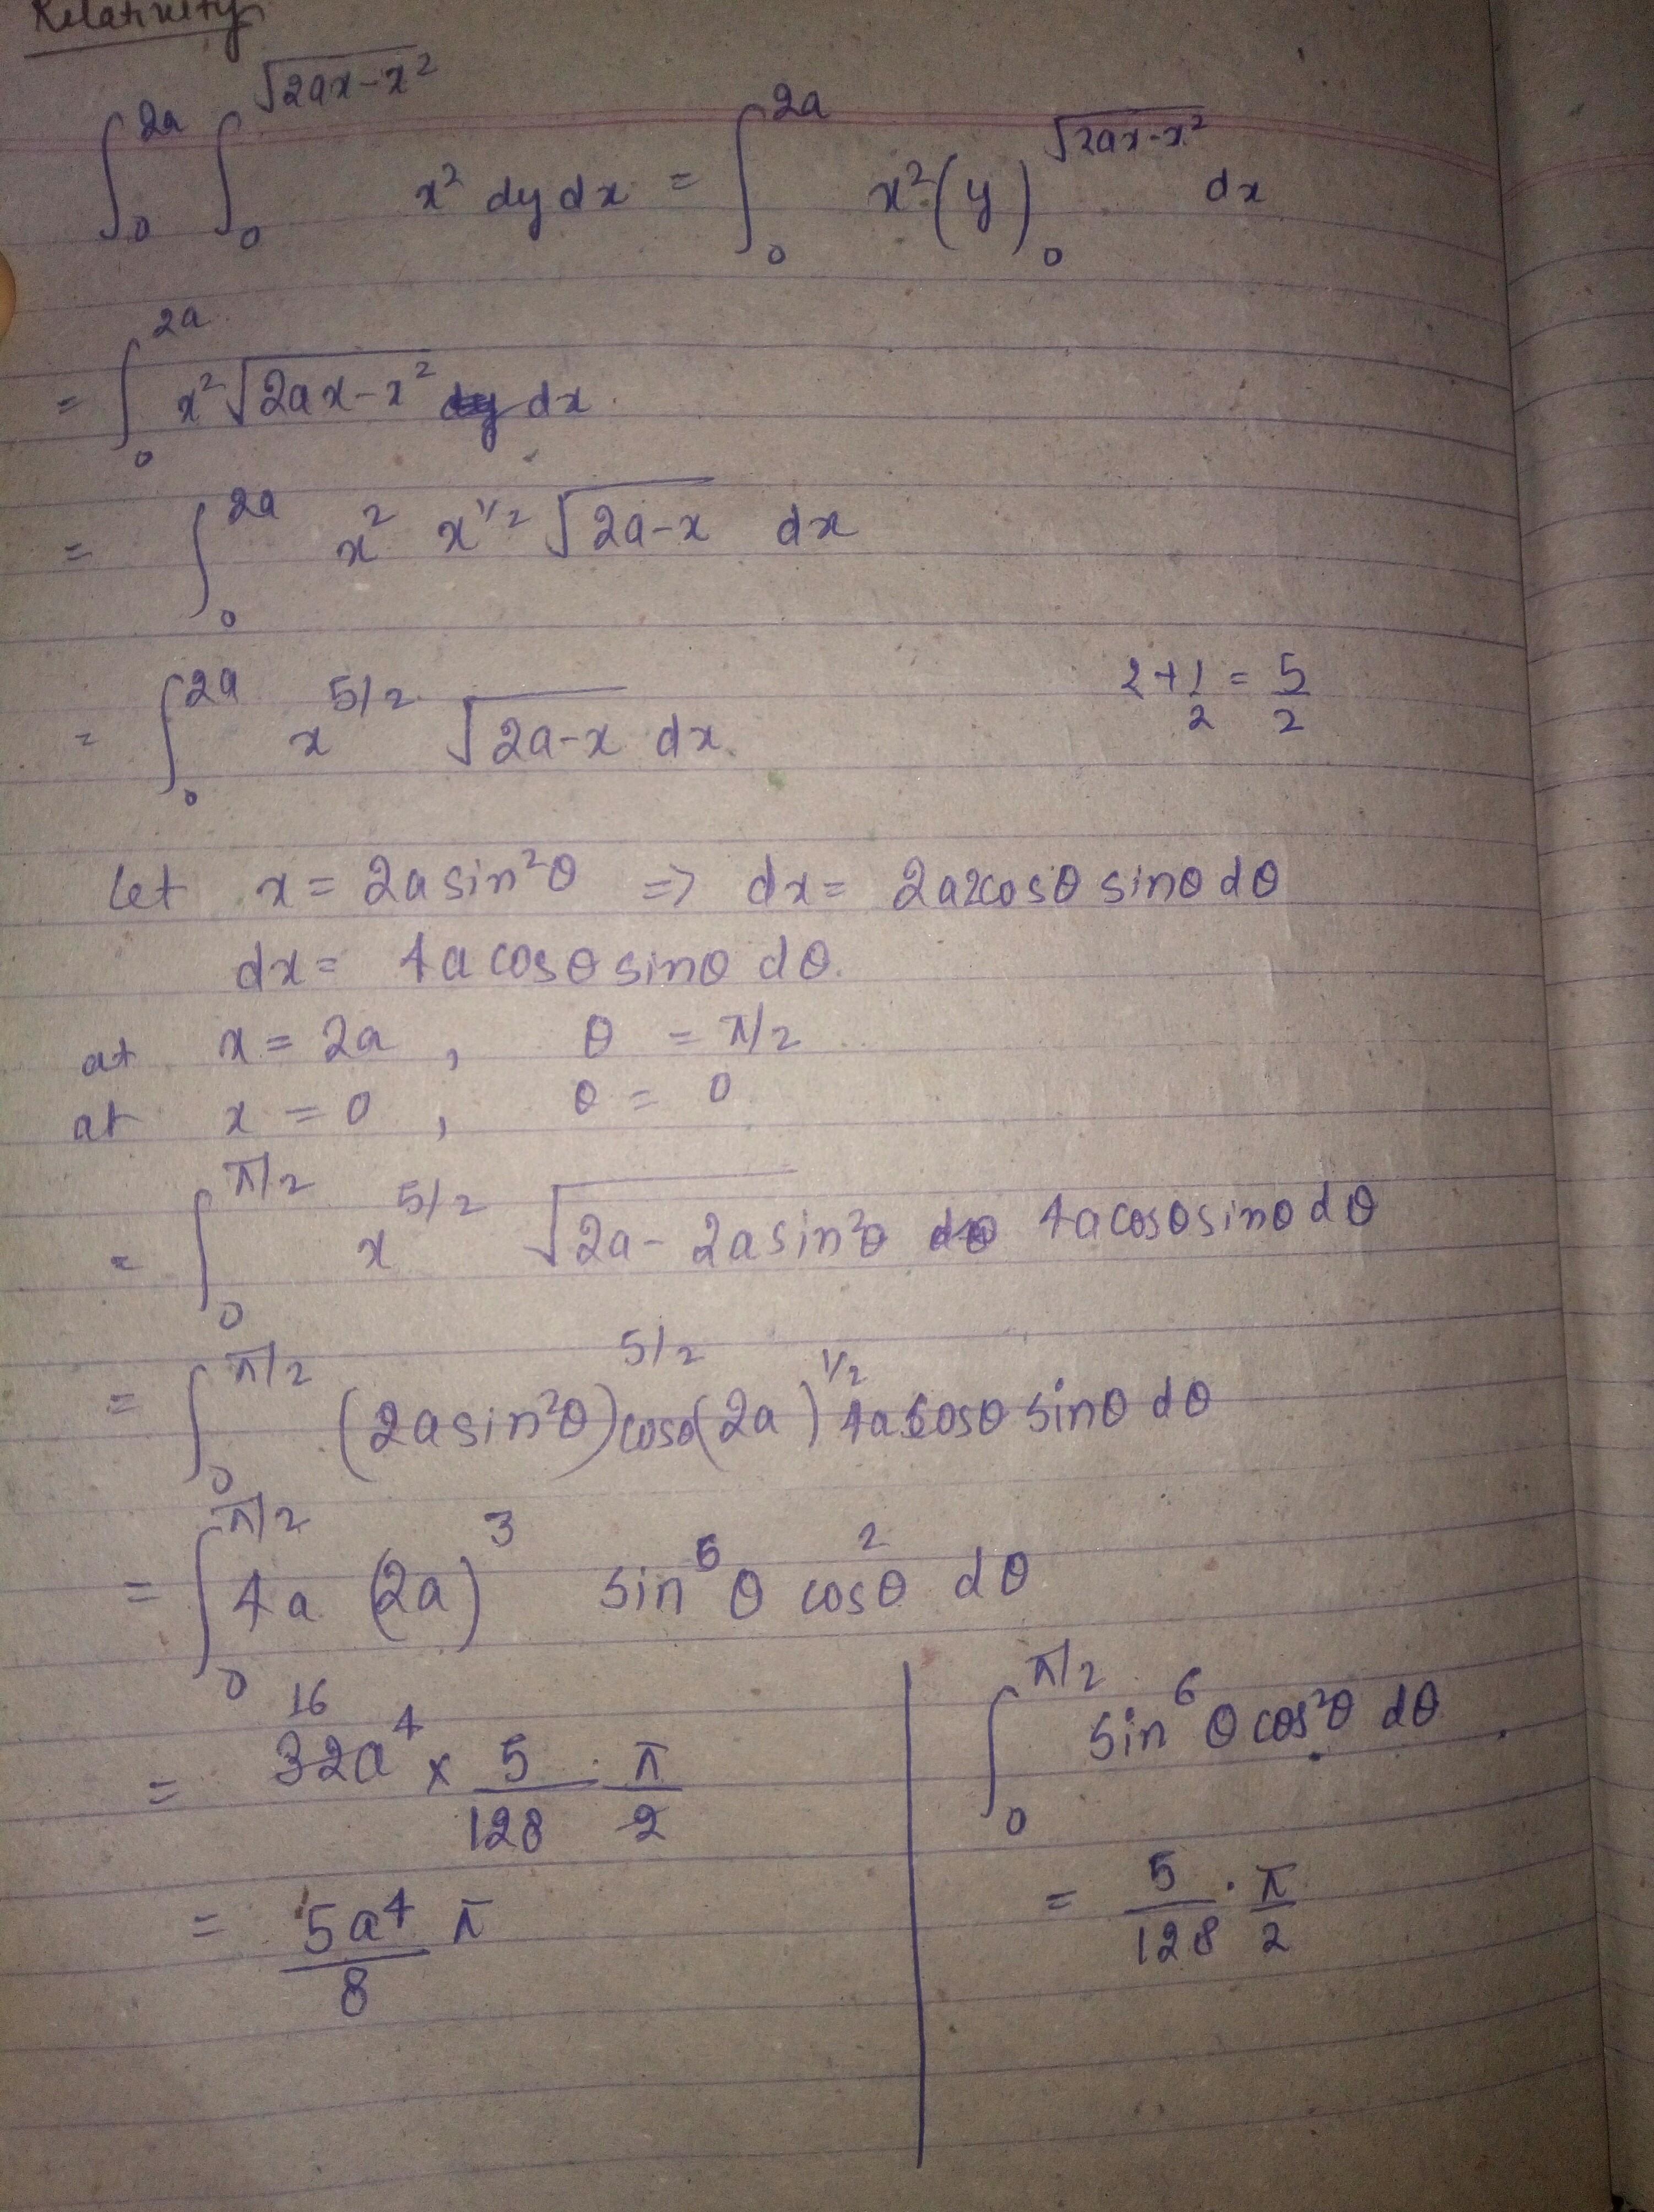 Relativity
∫₀^{2a} ∫₀^{√(2ax-x²)} x² dy dx = ∫₀^{2a} x² (y)₀^{√(2ax-x²)} dx
= ∫₀^{2a} x² √(2ax-x²) dx
= ∫₀^{2a} x² x^{1/2} √(2a-x) dx
= ∫₀^{2a} x^{5/2} √(2a-x) dx
2+1/2 = 5/2
Let x = 2a sin²θ => dx = 2a2cosθ sinθ dθ
dx = 4a cosθ sinθ dθ.
at x = 2a , θ = π/2
at x = 0 , θ = 0
= ∫₀^{π/2} x^{5/2} √(2a - 2a sin²θ) 4a cosθ sinθ dθ
= ∫₀^{π/2} (2a sin²θ)^{5/2} cosθ (2a)^{1/2} 4a cosθ sinθ dθ
= ∫₀^{π/2} 4a (2a)³ sin⁶θ cos²θ dθ
16
= 32a⁴ × 5/128 · π/2
= 5a⁴/8 π
∫₀^{π/2} sin⁶θ cos²θ dθ
= 5/128 · π/2